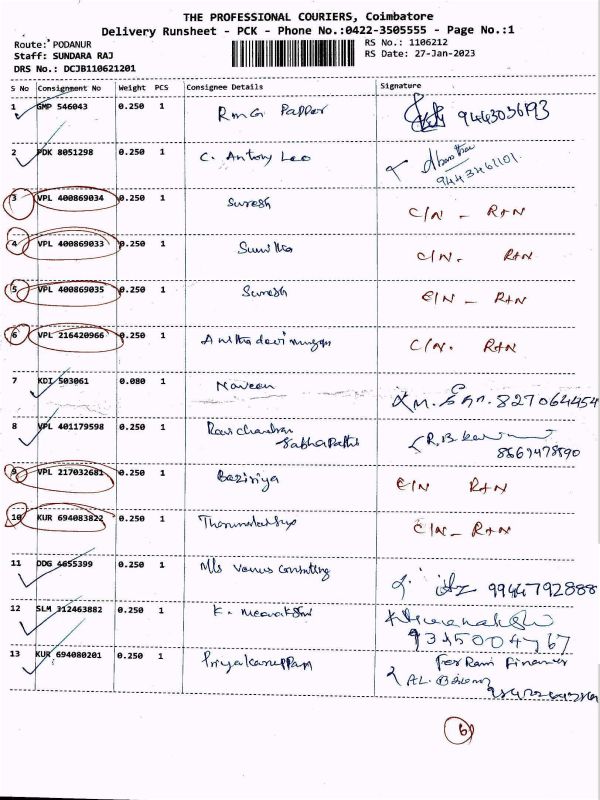 THE PROFESSIONAL COURIERS, Coimbatore
Delivery Runsheet - PCK - Phone No.:0422-3505555 - Page No.:1
Route: PODANUR RS No.: 1106212
Staff: SUNDARA RAJ RS Date: 27-Jan-2023
DRS No.: DCJB110621201
S No Consignment No Weight PCS Consignee Details Signature
1 GMP 546043 0.250 1 9443036193
2 PDK 8051298 0.250 1 C. Antony Leo
9443461101
3 VPL 400869034 0.250 1 Suresh C/N - R+N
4 VPL 400869033 0.250 1 C/N. R+N
5 VPL 400869035 0.250 1 Suresh C/N - R+N
6 VPL 216420966 0.250 1 C/N. R+N
7 KDI 503061 0.080 1 Naveen 827064454
8 VPL 401179598 0.250 1 Ravichandran
Sabhapathi
9 VPL 217032681 0.250 1 C/N R+N
10 KUR 694083822 0.250 1 C/N - R+N
11 DDG 4655399 0.250 1 M/s Venus Consulting 9944792888
12 SLM 312463882 0.250 1 K. Meenakshi
9345004767
13 KUR 694080201 0.250 1 Priya Karuppan For Rani Finance
6